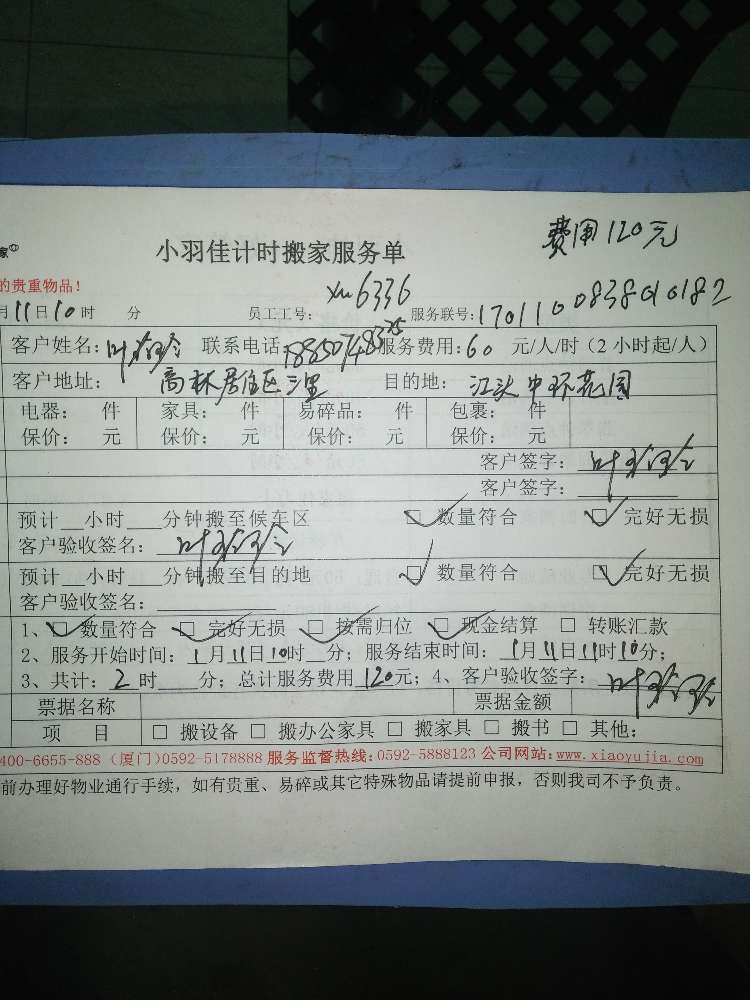 费用120元
家
小羽佳计时搬家服务单
的贵重物品!
月11日10时 分 员工工号:XM6336 服务联号:1701100838010182
客户姓名: 联系电话: 服务费用:60 元/人/时(2小时起/人)
客户地址: 高林居住区三里 目的地: 江头中环花园
电器: 件 家具: 件 易碎品: 件 包裹: 件
保价: 元 保价: 元 保价: 元 保价: 元
客户签字:
客户签字:
预计__小时___分钟搬至候车区 □数量符合 □完好无损
客户验收签名:
预计__小时___分钟搬至目的地 □数量符合 □完好无损
客户验收签名:
1、□数量符合 □完好无损 □按需归位 □现金结算 □转账汇款
2、服务开始时间:1月11日10时__分;服务结束时间:1月11日11时10分;
3、共计:2时___分;总计服务费用120元;4、客户验收签字:
票据名称 票据金额
项 目 □搬设备 □搬办公家具 □搬家具 □搬书 □其他:
400-6655-888 (厦门)0592-5178888 服务监督热线:0592-5888123 公司网站:www.xiaoyujia.com
前办理好物业通行手续,如有贵重、易碎或其它特殊物品请提前申报,否则我司不予负责。